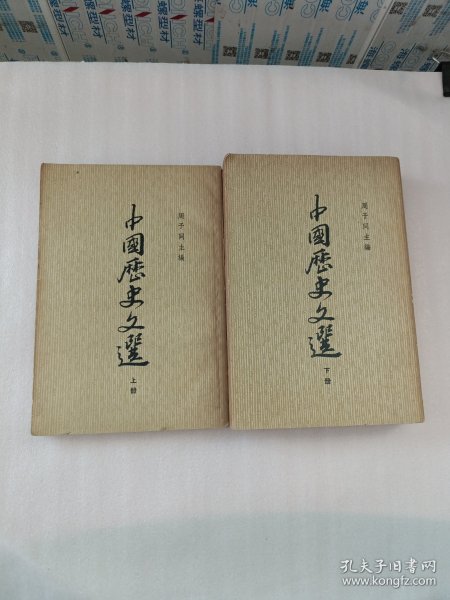 周予同主编
中國歷史文選
上册
周予同主编
中國歷史文選
下册
孔夫子旧书网
www.kongfz.com